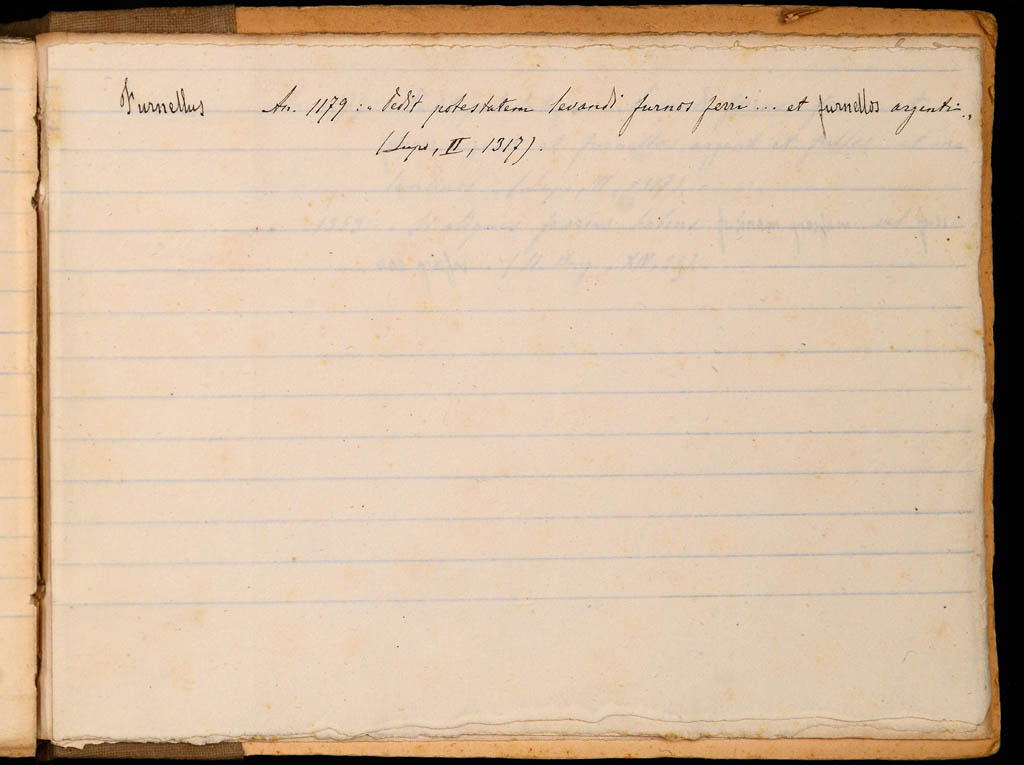 Furnellus An. 1179 : « Dedit potestatem levandi furnos ferri... et furnellos argenti »
(Lupo, II, 1317).